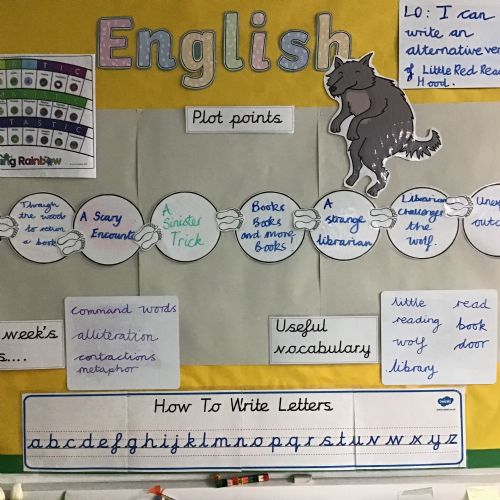 English
LO: I can
write an
alternative ver
of Little Red Read
Hood.
TIC
TASTIC
ing Rainbow
Plot points
Through
the woods
to return
a book
A Scary
Encount
A
Sinister
Trick
Books
Books
and more
Books!
A
strange
librarian
Librarian
Challenges
the
wolf.
Unex
outco
week's
s....
command words
alliteration
contractions
metaphor
Useful
vocabulary
little read
reading book
wolf door
library
How To Write Letters
a b c d e f g h i j k l m n o p q r s t u v w x y z